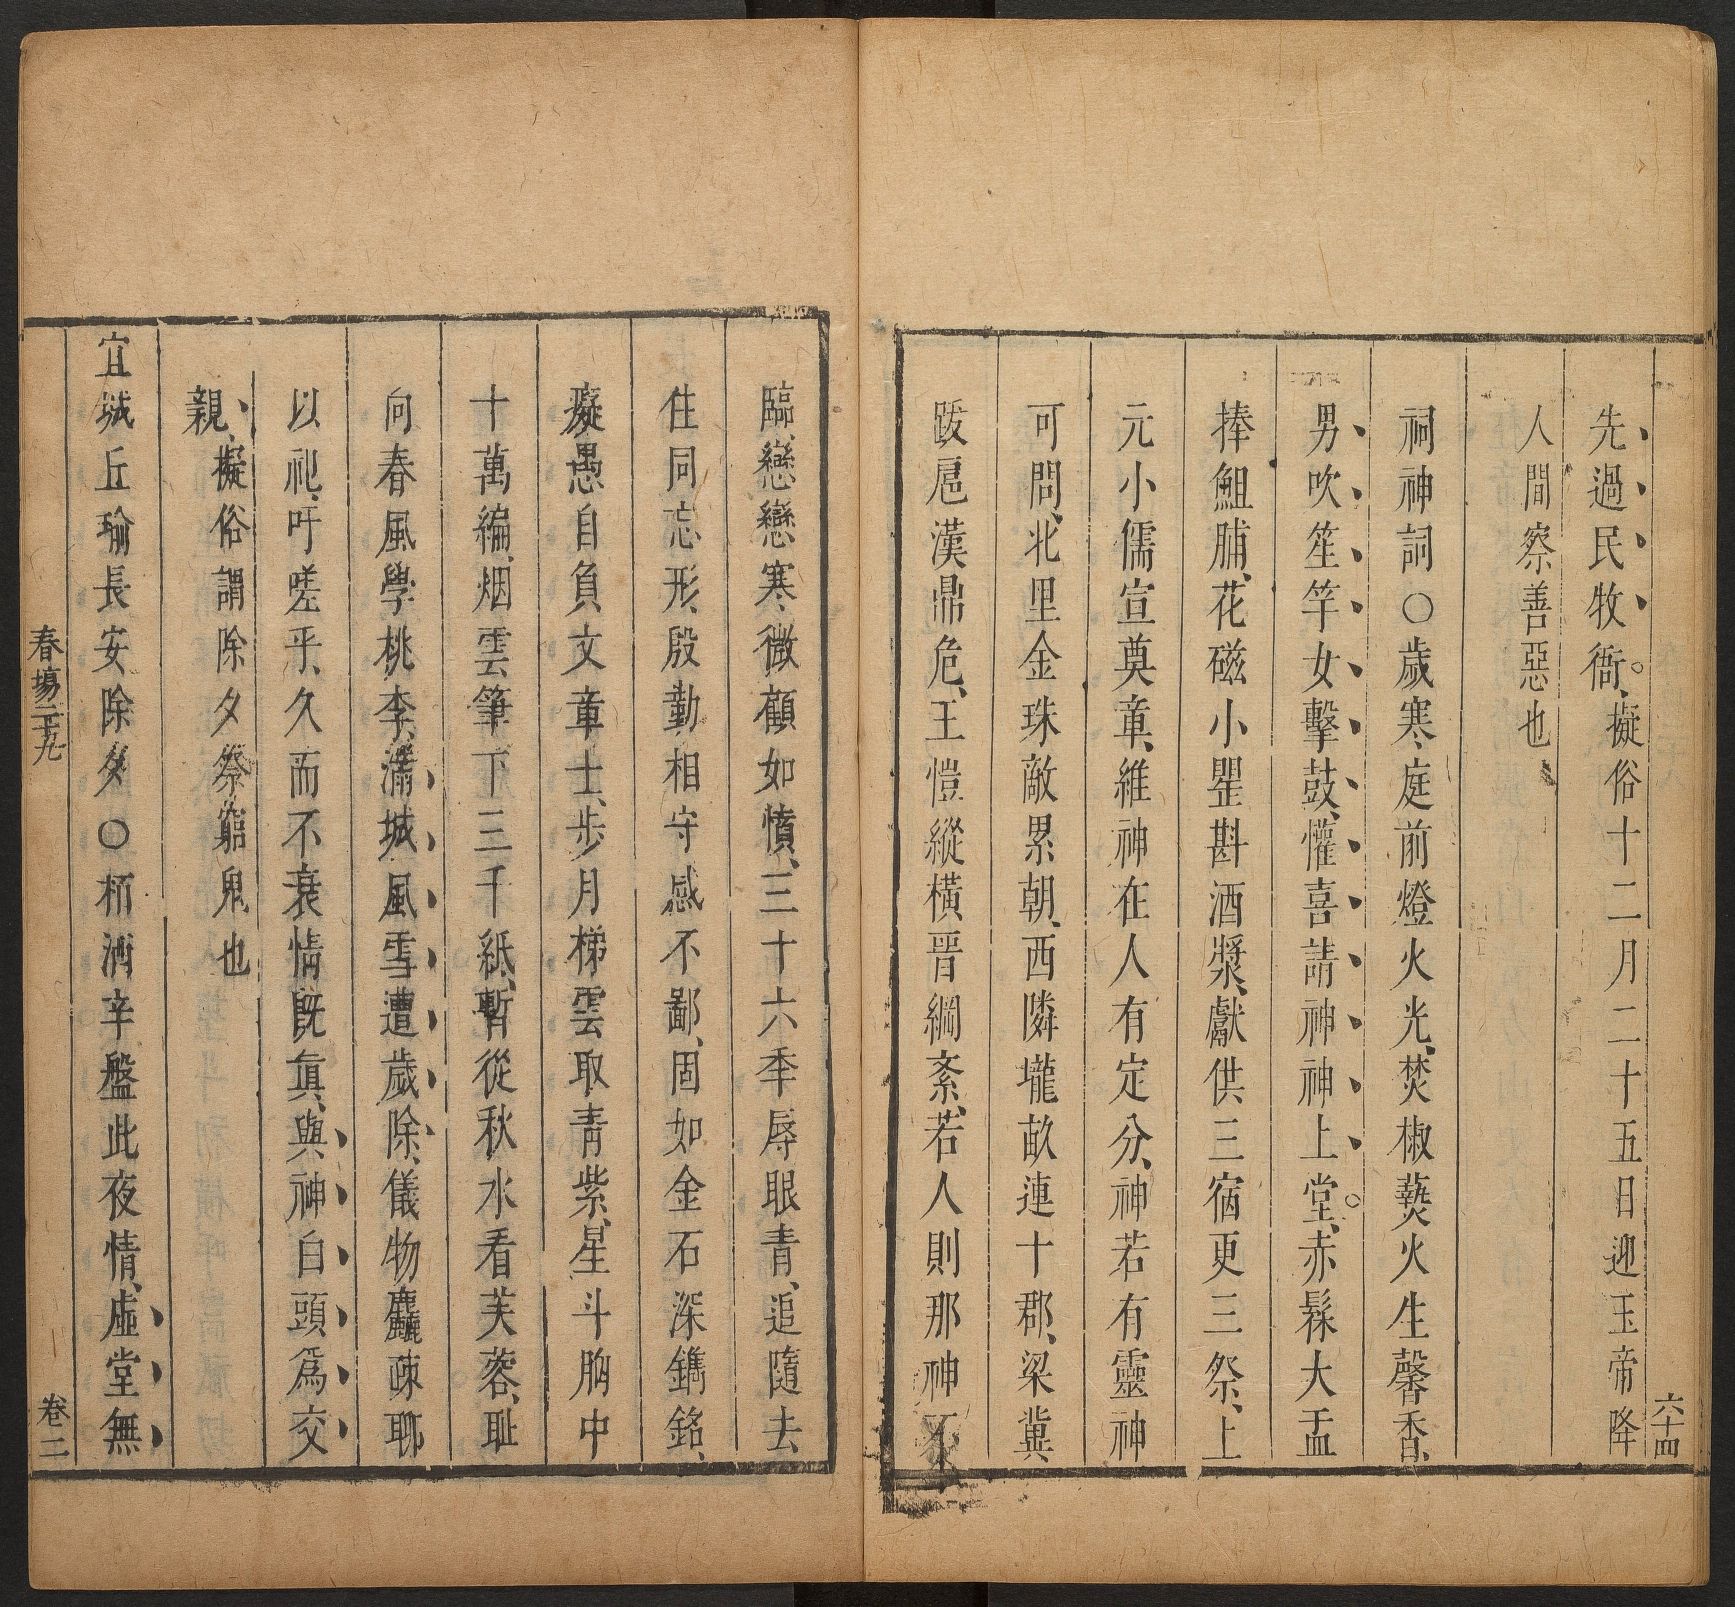 先過民牧衙。擬俗十二月二十五日迎玉帝降
人間察善惡也
祠神詞〇歲寒庭前燈火光、焚椒爇火生馨香、
男吹笙竽女擊鼓、懽喜請神神上堂。赤鬃大盂
捧鮔脯、花磁小斝斟酒漿、獻供三宿更三祭、上
元小儒宣奠章、維神在人有定分、神若有靈神
可問、北里金珠敵累朝、西隣壠畝連十郡、梁冀
跋扈漢鼎危、王愷縱橫晋綱紊、若人則那神不
六十四
臨、戀戀寒微顧如憤、三十六季辱眼青、追隨去
住同忘形、殷勤相守感不鄙、固如金石深鐫銘、
癡愚自負文章士、步月梯雲取青紫、星斗胸中
十萬編、烟雲筆下三千紙、暫從秋水看芙蓉、耻
向春風學桃李、滿城風雪遭歲除、儀物麤疎聊
以祀、吁嗟乎、久而不衰情旣眞、與神白頭爲交
親、擬俗謂除夕祭窮鬼也
宜城丘瑜長安除夕〇栢酒辛盤此夜情、虛堂無
春場三十九
卷二